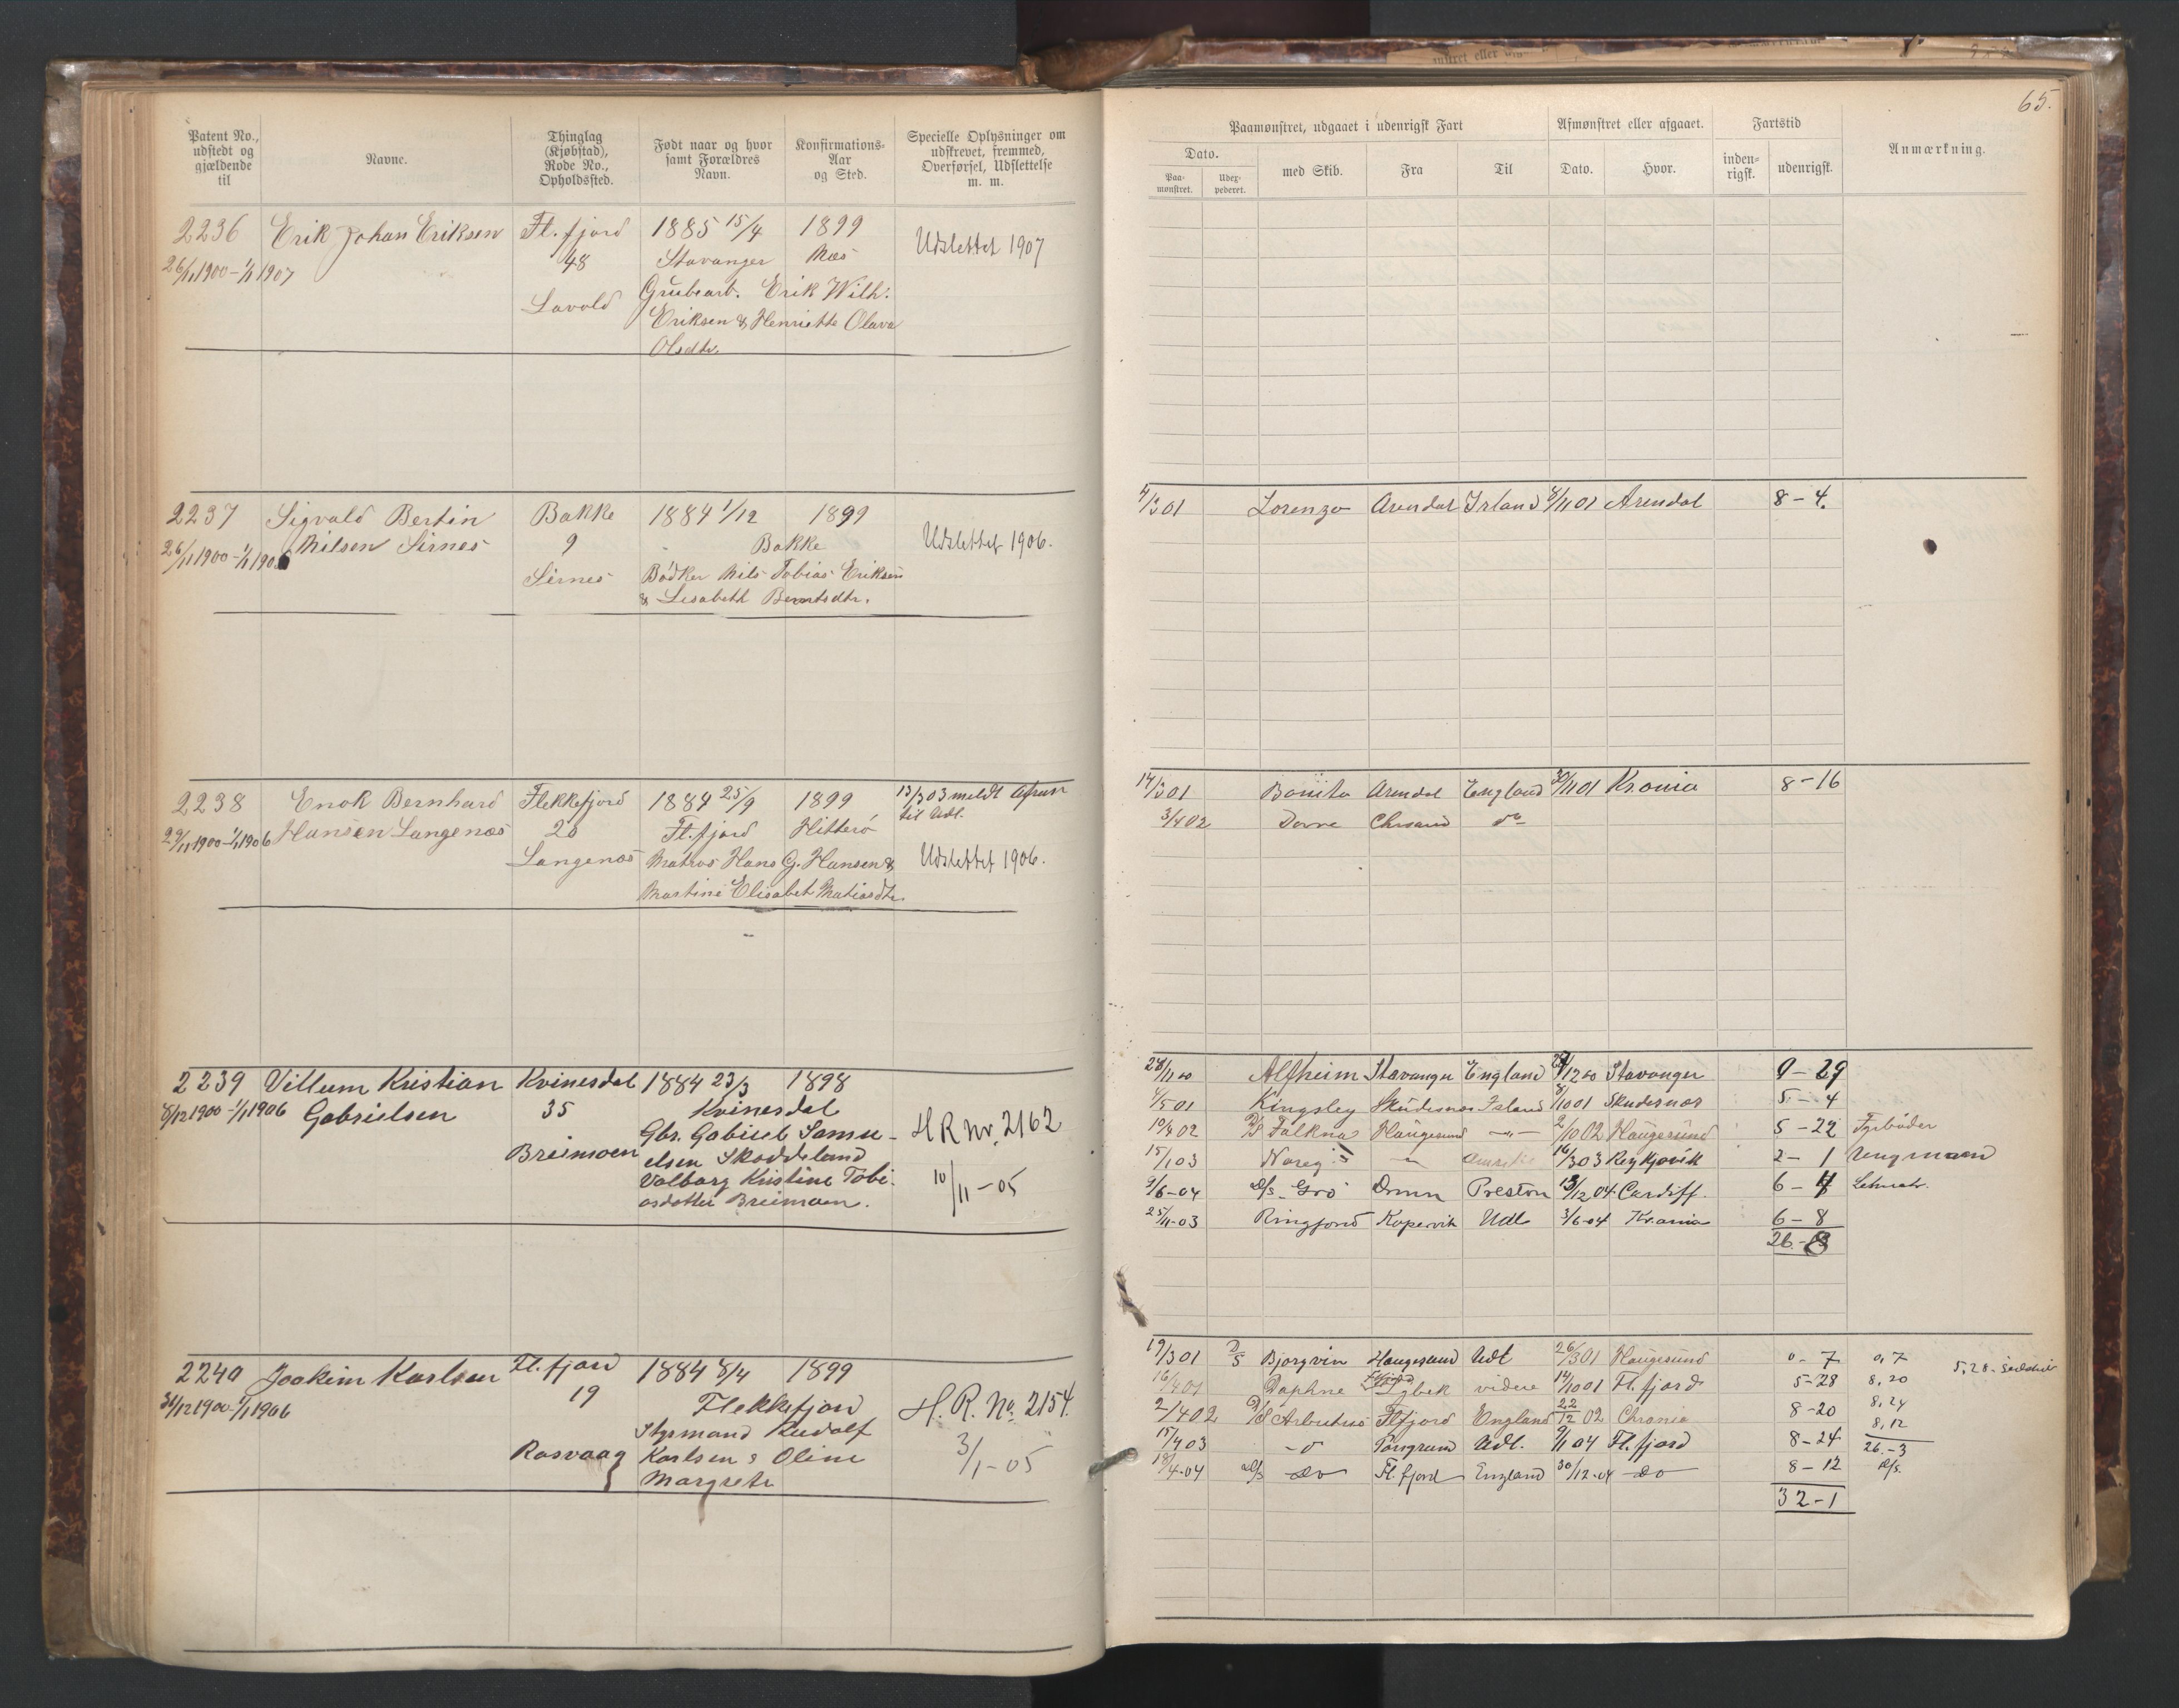 65.
Patent No., udstedt og gjældende til
Navne.
Thinglag (Kjøbstad), Rode No., Opholdssted.
Født naar og hvor samt Forældres Navn.
Konfirmations-Aar og Sted.
Specielle Oplysninger om udskrevet, fremmed, Overførsel, Udslettelse m. m.
Paamønstret, udgaaet i udenrigsk Fart
Dato.
Paa-mønstret.
Udex-pederet.
med Skib.
Fra
Til
Afmønstret eller afgaaet.
Dato.
Hvor.
Fartstid
inden-rigsk.
udenrigsk.
Anmærkning.
2236 Erik Johan Eriksen Fl. fjord 1885 15/4 1899
26/11 1900 - 1/1 1907 48 Stavanger Næs Udslettet 1907
Lavold Grubearb. Erik Wilh.
Eriksen & Henriette Olava
Olsdtr.
2237 Sigvald Bertin Bakke 1884 1/12 1899
26/11 1900 - 1/1 1906 Nilsen Sirnes 9 Bakke Udslettet 1906.
Sirnes Bødker Nils Tobias Eriksen
& Lisabeth Berntsdtr.
4/3 01 Lorenzo Arendal Irland 8/11 01 Arendal 8 - 4.
2238 Enok Bernhard Flekkefjord 1884 25/9 1899 13/3 03 meldt afrun
29/11 1900 - 1/1 1906 Hansen Langenæs 20 Fl. fjord Hitterø til Udl.
Langenæs Matros Hans G. Hansen & Udslettet 1906.
Martine Elisabet Matiasdtr
14/3 01 Bonita Arendal England 30/11 01 Krania 8 - 16
3/4 02 Dovre Chrsand do
2239 Villum Kristian Kvinesdal 1884 23/3 1898
8/12 1900 - 1/1 1906 Gabrielsen 35 Kvinesdal
Breimoen Gbr. Gabriel Samu- H R Nr. 2162
elsen Skoddeland
Valborg Kristine Tobi- 10/11 - 05
asdatter Breimoen.
28/11 00 Alfheim Stavanger England 27/12 00 Stavanger 0 - 29
4/5 01 Kingsley Skudesnæs Island 8/10 01 Skudesnæs 5 - 4
10/4 02 D/S Falkna Haugesund -"- 2/10 02 Haugesund 5 - 22 Fyrbøder
15/1 03 Noreg -"- 16/3 03 Reykjavik 2 - 1 Ungmand
9/6 - 04 D/s Gro Dram Preston 13/12 04 Cardiff. 6 - 4 Letmatr.
25/11 - 03 Ringfjord Kopervik Udl 3/6 - 04 Krania 6 - 8
26 - 8
2240 Joakim Karlsen Fl. fjord 1884 8/4 1899
31/12 1900 - 1/1 1906 19 Flekkefjord H. R. No. 2154.
Styrmand Rudolf
Rasvaag Karlsen & Oline 3/1 - 05
Margrete
19/3 01 D/S Bjorgvin Haugesund Udl 26/3 01 Haugesund 0 - 7 0,7
16/4 01 Daphne videre 14/10 01 Fl. fjord 5 - 28 8,20 5,28
2/4 02 D/S Arbutus Flfjord England 22/12 02 Chrania 8 - 20 8,24
15/4 03 - o Porsgrund Udl. 9/1 04 Fl. fjord 8 - 24 8,12
18/4 - 04 D/s do Fl. fjord England 30/12 - 04 do 8 - 12 26 - 3
D/s.
32 - 1